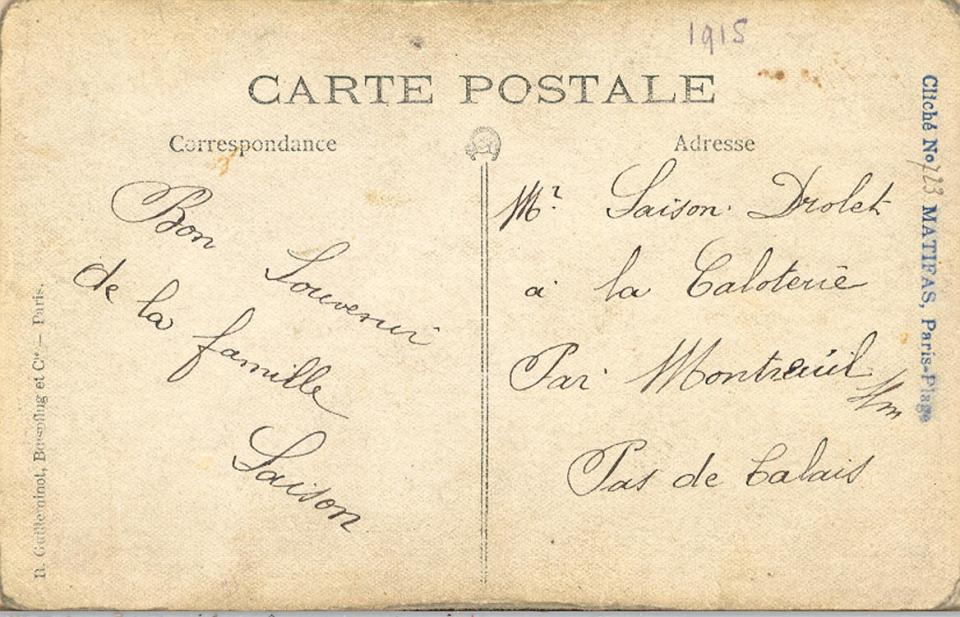 1915
CARTE POSTALE
Correspondance
Adresse
Bon
Souvenir
de la famille
Saison
Mr Saison. Drolet
à la Caloterie
Par Montreuil s/m
Pas de Calais
Cliché No 723 MATIFAS, Paris-Plage
R. Guilleminot, Bœspflug et Cie. — Paris.